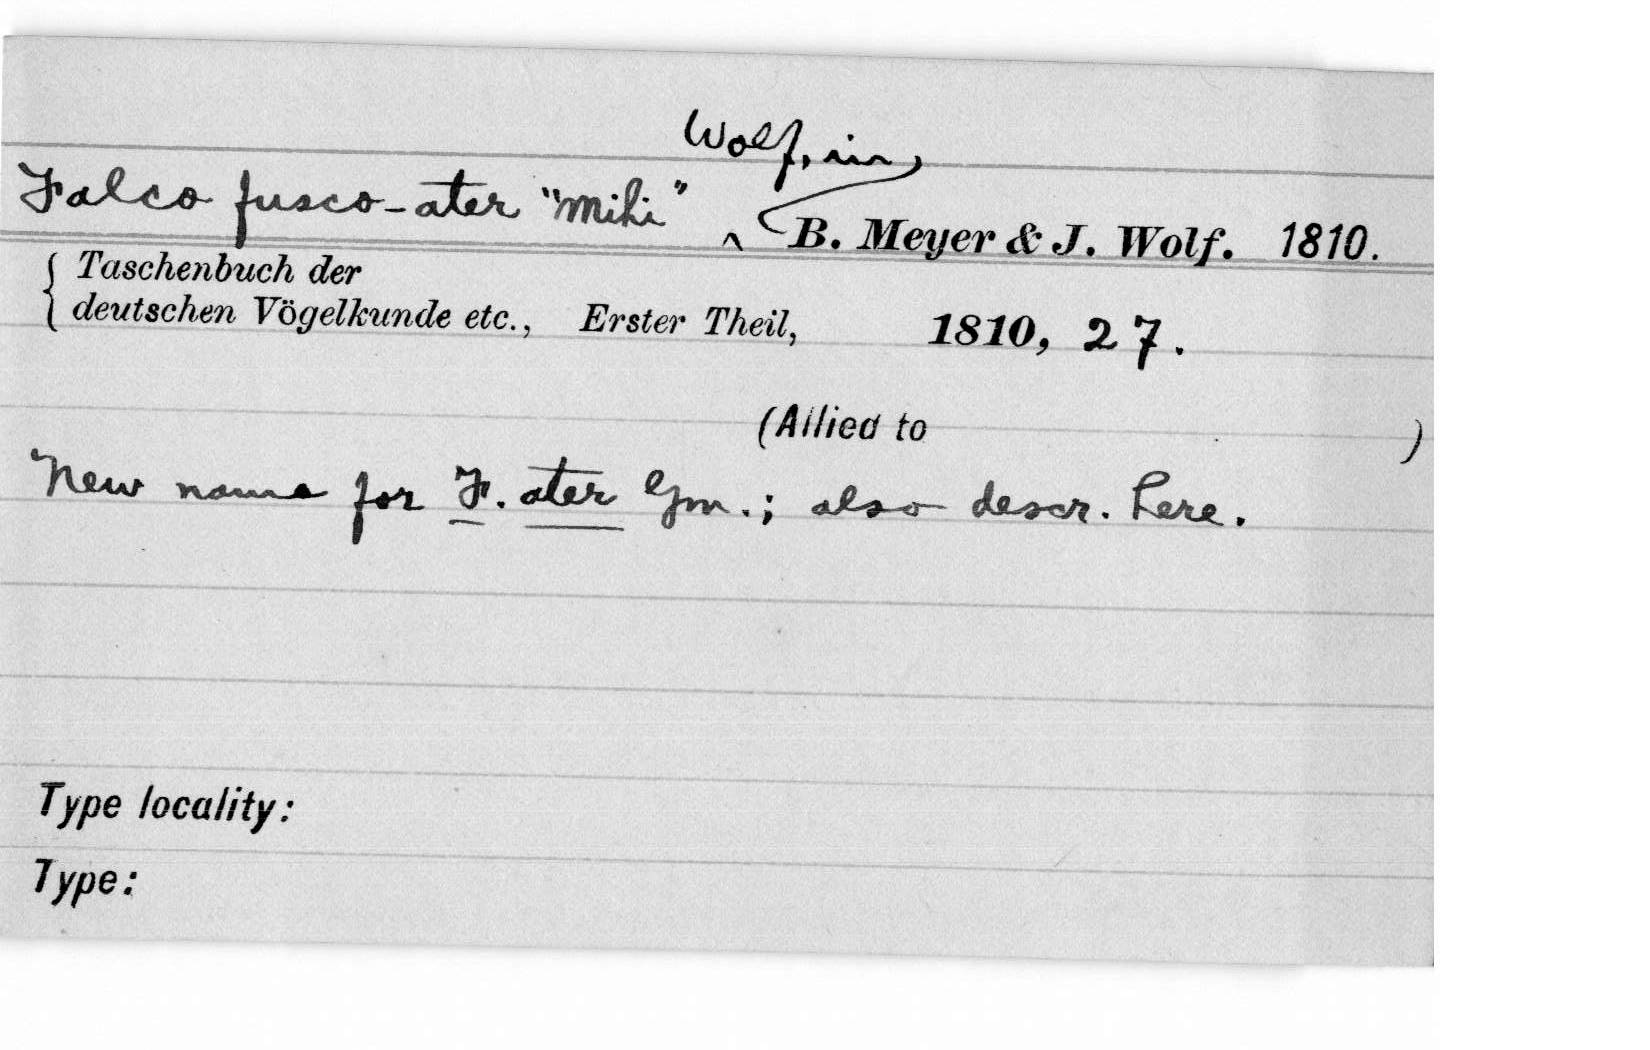 Wolf, in
Falco fusco-ater "mihi" ^ B. Meyer & J. Wolf. 1810.
{ Taschenbuch der
deutschen Vögelkunde etc., Erster Theil, 1810, 27.
(Allied to )
New name for F. ater Gm.; also descr. here.
Type locality:
Type: